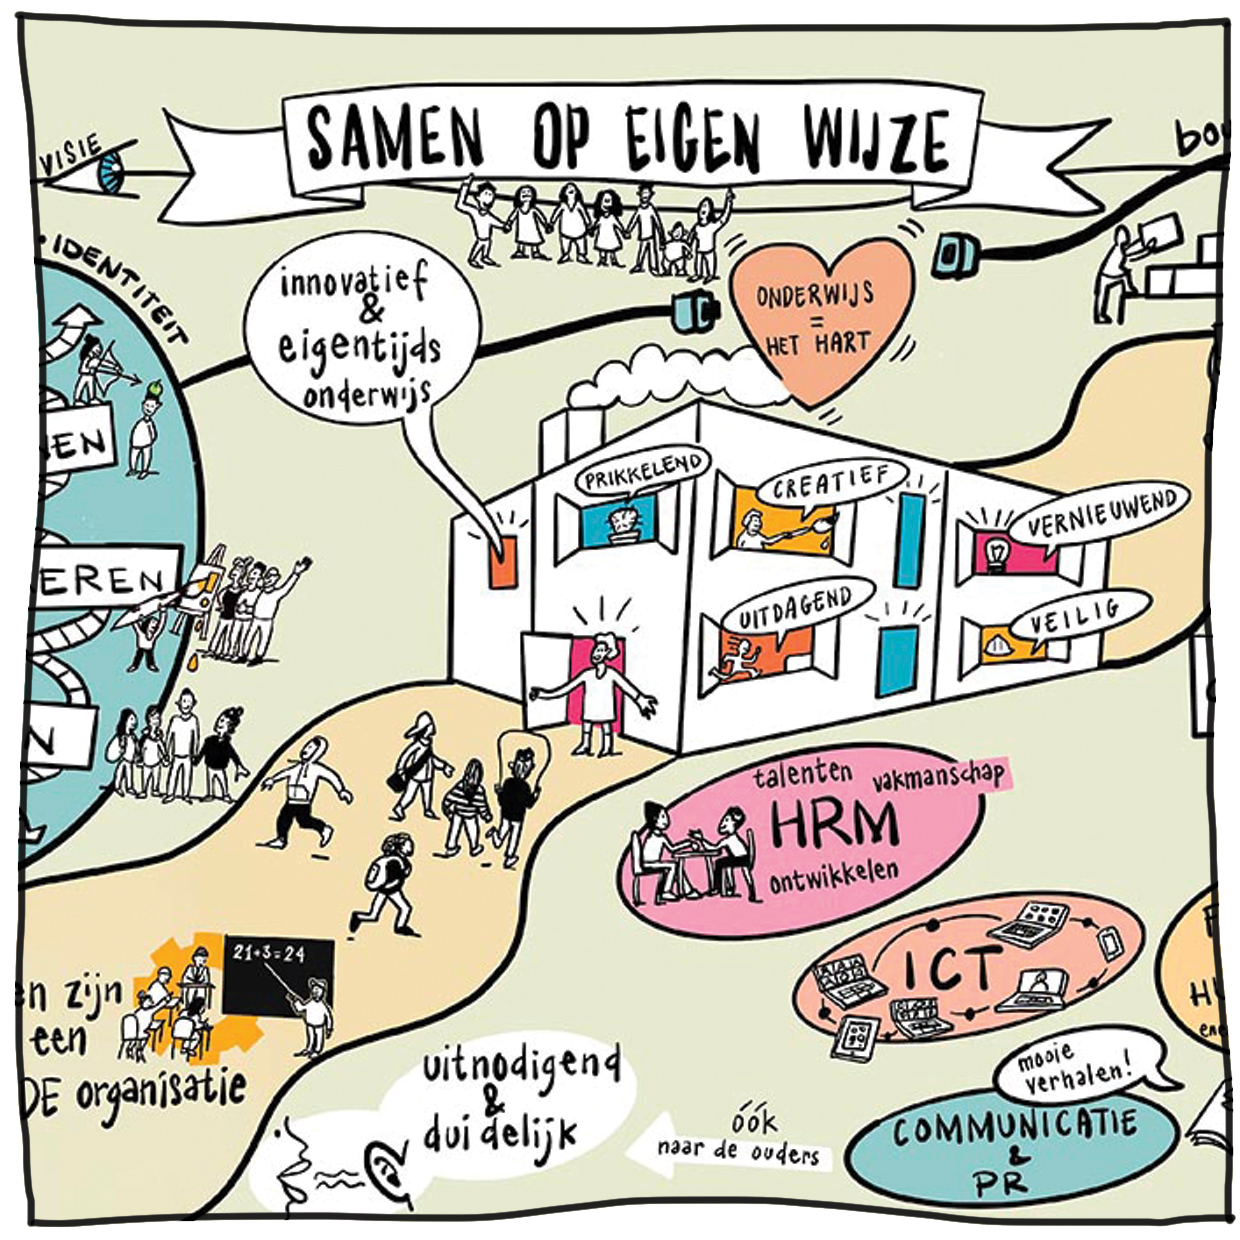 SAMEN OP EIGEN WIJZE
VISIE
IDENTITEIT
innovatief
&
eigentijds
onderwijs
ONDERWIJS
=
HET HART
PRIKKELEND
CREATIEF
VERNIEUWEND
UITDAGEND
VEILIG
EREN
talenten vakmanschap
HRM
ontwikkelen
ICT
21+3=24
zijn
een
DE organisatie
uitnodigend
&
duidelijk
óók
naar de ouders
mooie
verhalen!
COMMUNICATIE
&
PR